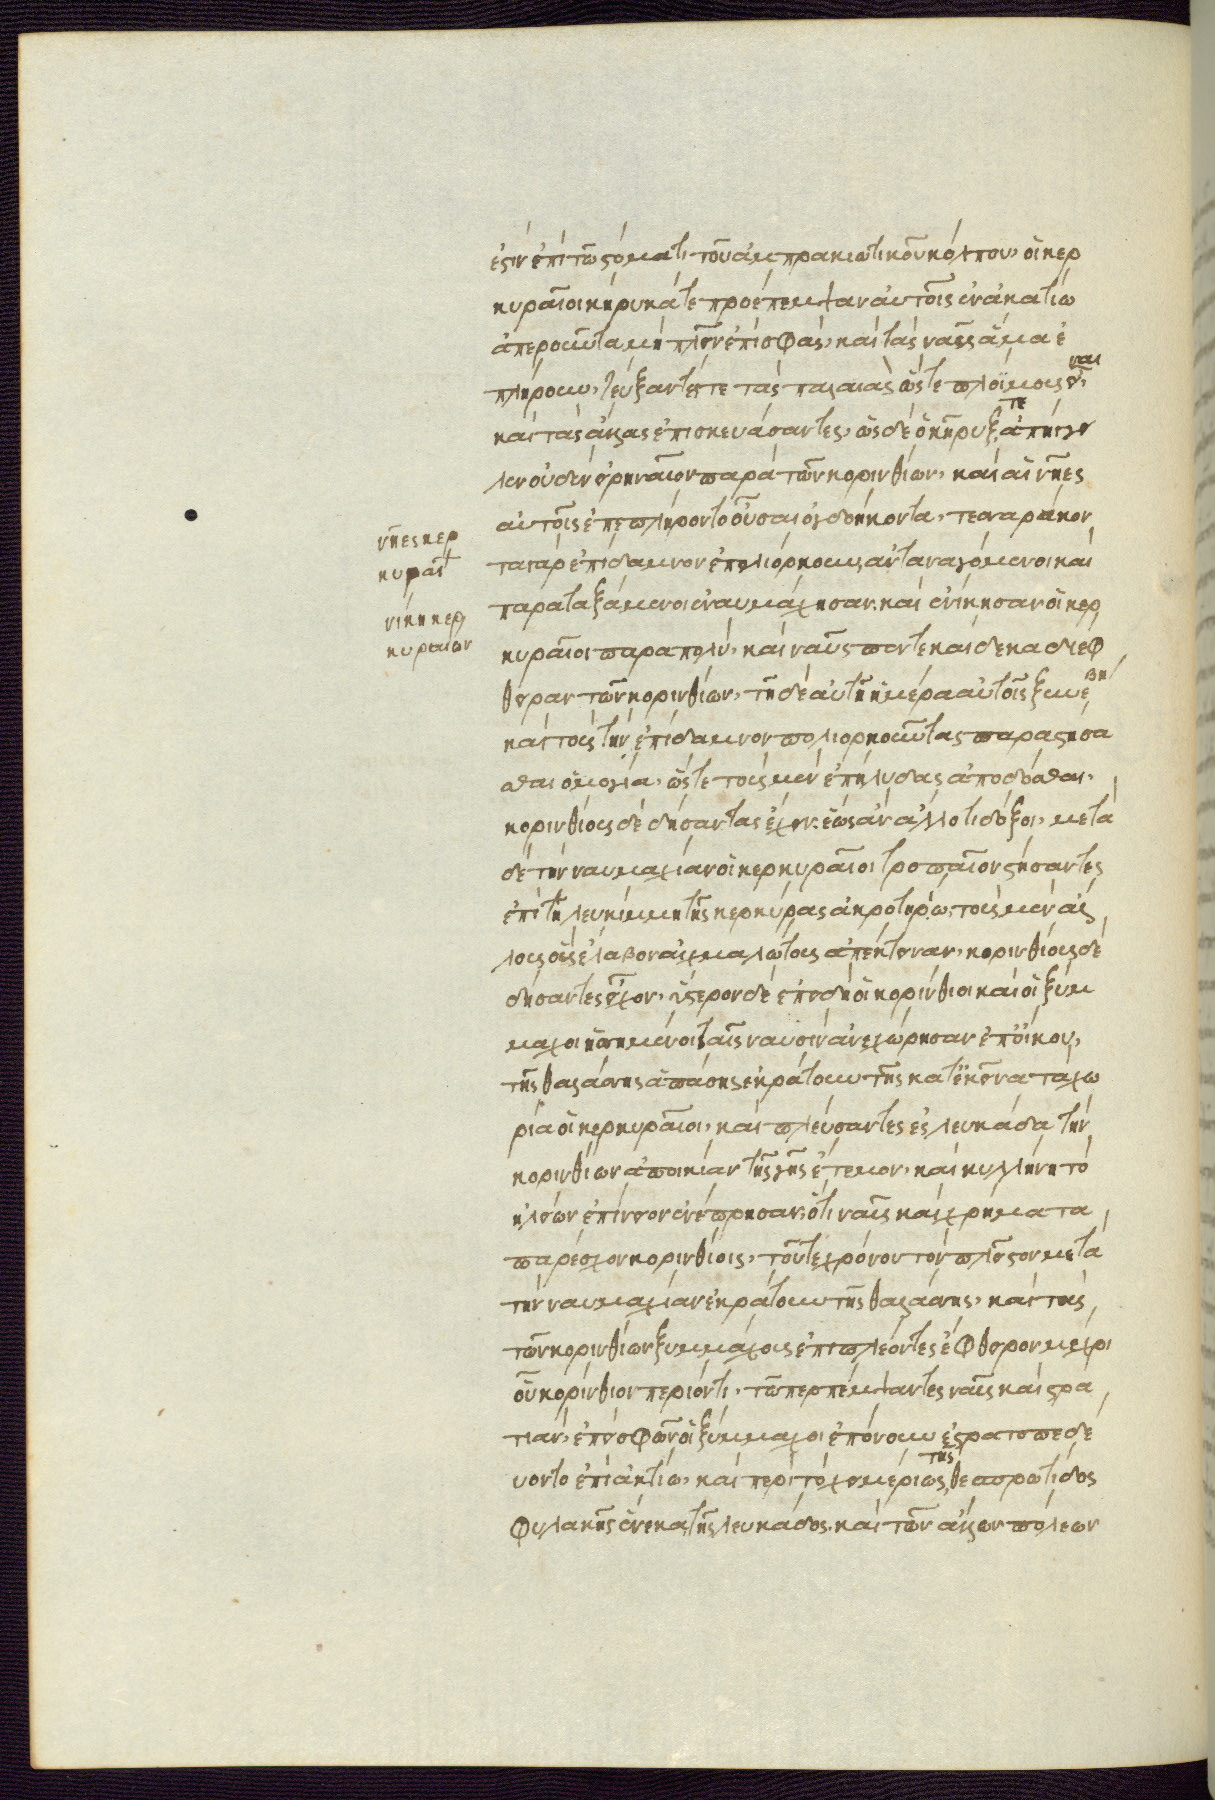 ἐστὶν ἐπὶ τῶ στόματι τοῦ ἀμπρακιωτικοῦ κόλπου, οἱ κερ
κυραῖοι κήρυκά τε προέπεμψαν αὐτοῖς ἐν ἀκατίω
ἀπεροῦντα μὴ πλεῖν ἐπὶ σφᾶς, καὶ τὰς ναῦς ἅμα ἐ
πλήρουν, ζεύξαντές τε τὰς παλαιὰς ὥστε πλοΐμους εἶναι,
καὶ τὰς ἄλλας ἐπισκευάσαντες, ὡς δὲ ὁ κῆρυξ τε ἀπήγγει
λεν οὐδὲν εἰρηναῖον παρὰ τῶν κορινθίων, καὶ αἱ νῆες
αὐτοῖς ἐπεπλήρωντο οὖσαι ὀγδοήκοντα, τεσσαράκον
τα γὰρ ἐπίδαμνον ἐπολιόρκουν, ἀνταναγόμενοι καὶ
παραταξάμενοι ἐναυμάχησαν. καὶ ἐνίκησαν οἱ κερ
κυραῖοι παραπολύ, καὶ ναῦς πεντεκαίδεκα διέφ
θειραν τῶν κορινθίων, τῆ δὲ αὐτῆ ἡμέρα αὐτοῖς ξυνέβη
καὶ τοὺς τὴν ἐπίδαμνον πολιορκοῦντας παραστήσα
σθαι ὁμολογία, ὥστε τοὺς μὲν ἐπήλυδας ἀποδόσθαι,
κορινθίους δὲ δήσαντας ἔχειν. ἕως ἂν ἄλλο τι δόξει, μετὰ
δὲ τὴν ναυμαχίαν οἱ κερκυραῖοι τροπαῖον στήσαντες
ἐπὶ τῆ λευκίμμη τῆς κερκύρας ἀκροτηρίω, τοὺς μὲν ἄλ
λους οὓς ἔλαβον αἰχμαλώτους ἀπέκτειναν, κορινθίους δὲ
δήσαντες εἶχον, ὕστερον δὲ ἐπειδὴ οἱ κορίνθιοι καὶ οἱ ξύμ
μαχοι ἡσσημένοι ταῖς ναυσὶν ἀνεχώρησαν ἐπ' οἴκου,
τῆς θαλάσσης ἁπάσης ἐκράτουν τῆς κατ' ἐκεῖνα τὰ χω
ρία οἱ κερκυραῖοι, καὶ πλεύσαντες ἐς λευκάδα τὴν
κορινθίων ἀποικίαν τῆς γῆς ἔτεμον, καὶ κυλλήνη τὸ
ἠλείων ἐπίνειον ἐνέπρησαν, ὅτι ναῦς καὶ χρήματα
παρέσχον κορινθίοις, τοῦ τε χρόνον τὸν πλεῖστον μετὰ
τὴν ναυμαχίαν ἐκράτουν τῆς θαλάσσης, καὶ τοὺς
τῶν κορινθίων ξυμμάχους ἐπιπλέοντες ἔφθειρον μέχρι
οὗ κορίνθιοι περιόντι, τῶ περπέμψαντες ναῦς καὶ στρα
τιάν, ἐπεὶ σφῶν οἱ ξύμμαχοι ἐπόνουν ἐστρατοπεδε
ύοντο ἐπὶ ἀκτίω, καὶ περὶ τὸ χειμέριον τῆς θεσπρωτίδος
φυλακῆς ἕνεκα τῆς λευκάδος. καὶ τῶν ἄλλων πόλεων
νῆες κερ
κυραί
νίκη κερ
κυραίων